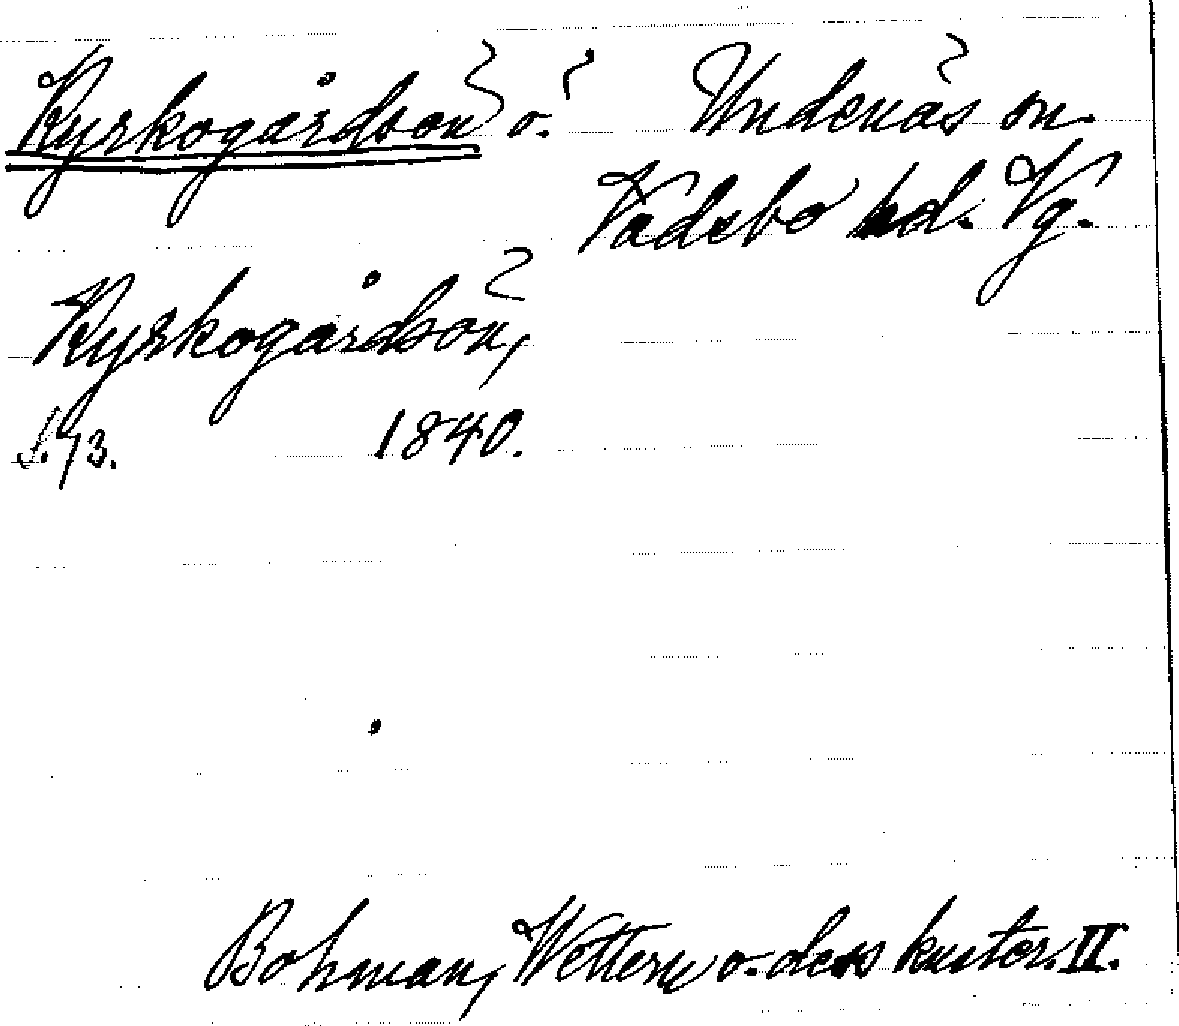 Kyrkogårdsön ö. Undenäs sn.
Vadsbo hd. Vg.
Kyrkogårdsön,
s. 73. 1840.
Bohman, Wettern o. dess kuster. II.